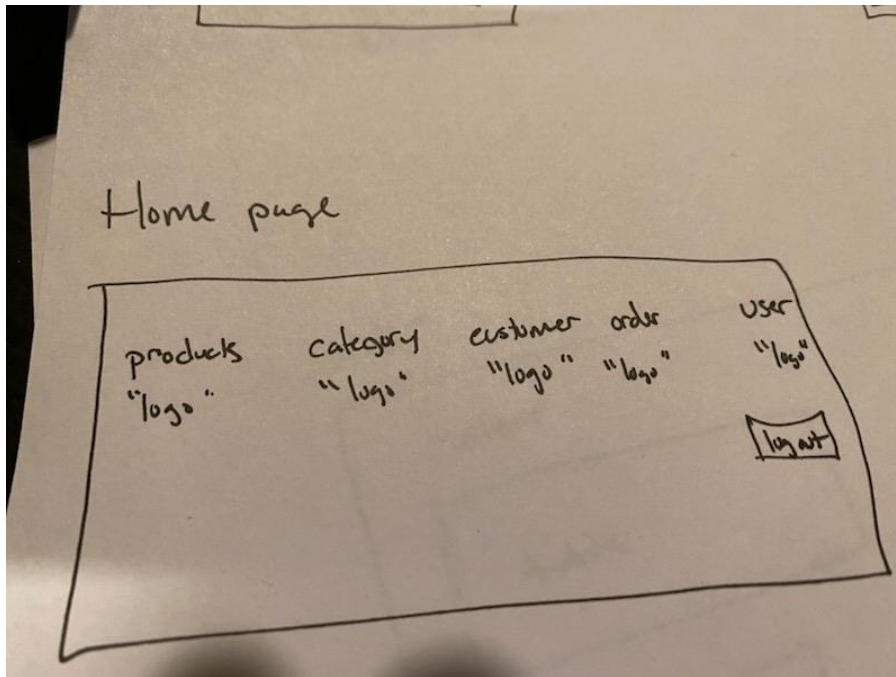 Home page
products category customer order user
"logo" "logo" "logo" "logo" "logo"
log out